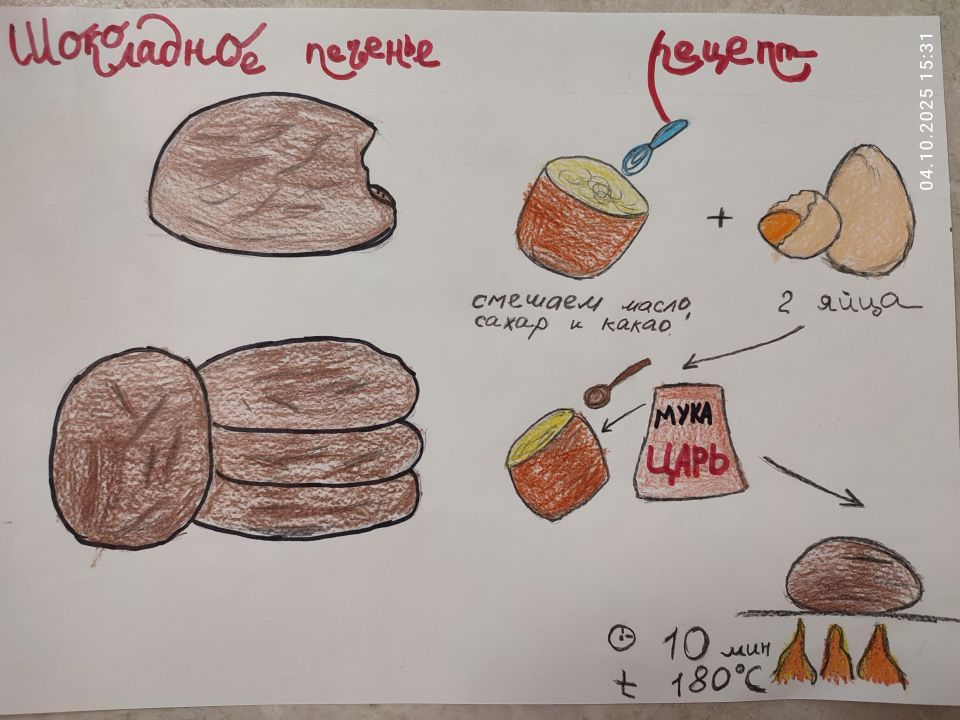 Шоколадное печенье рецепт
+
смешаем масло,
сахар и какао.
2 яйца
МУКА
ЦАРЬ
10 мин
t 180°C
04.10.2025 15:31